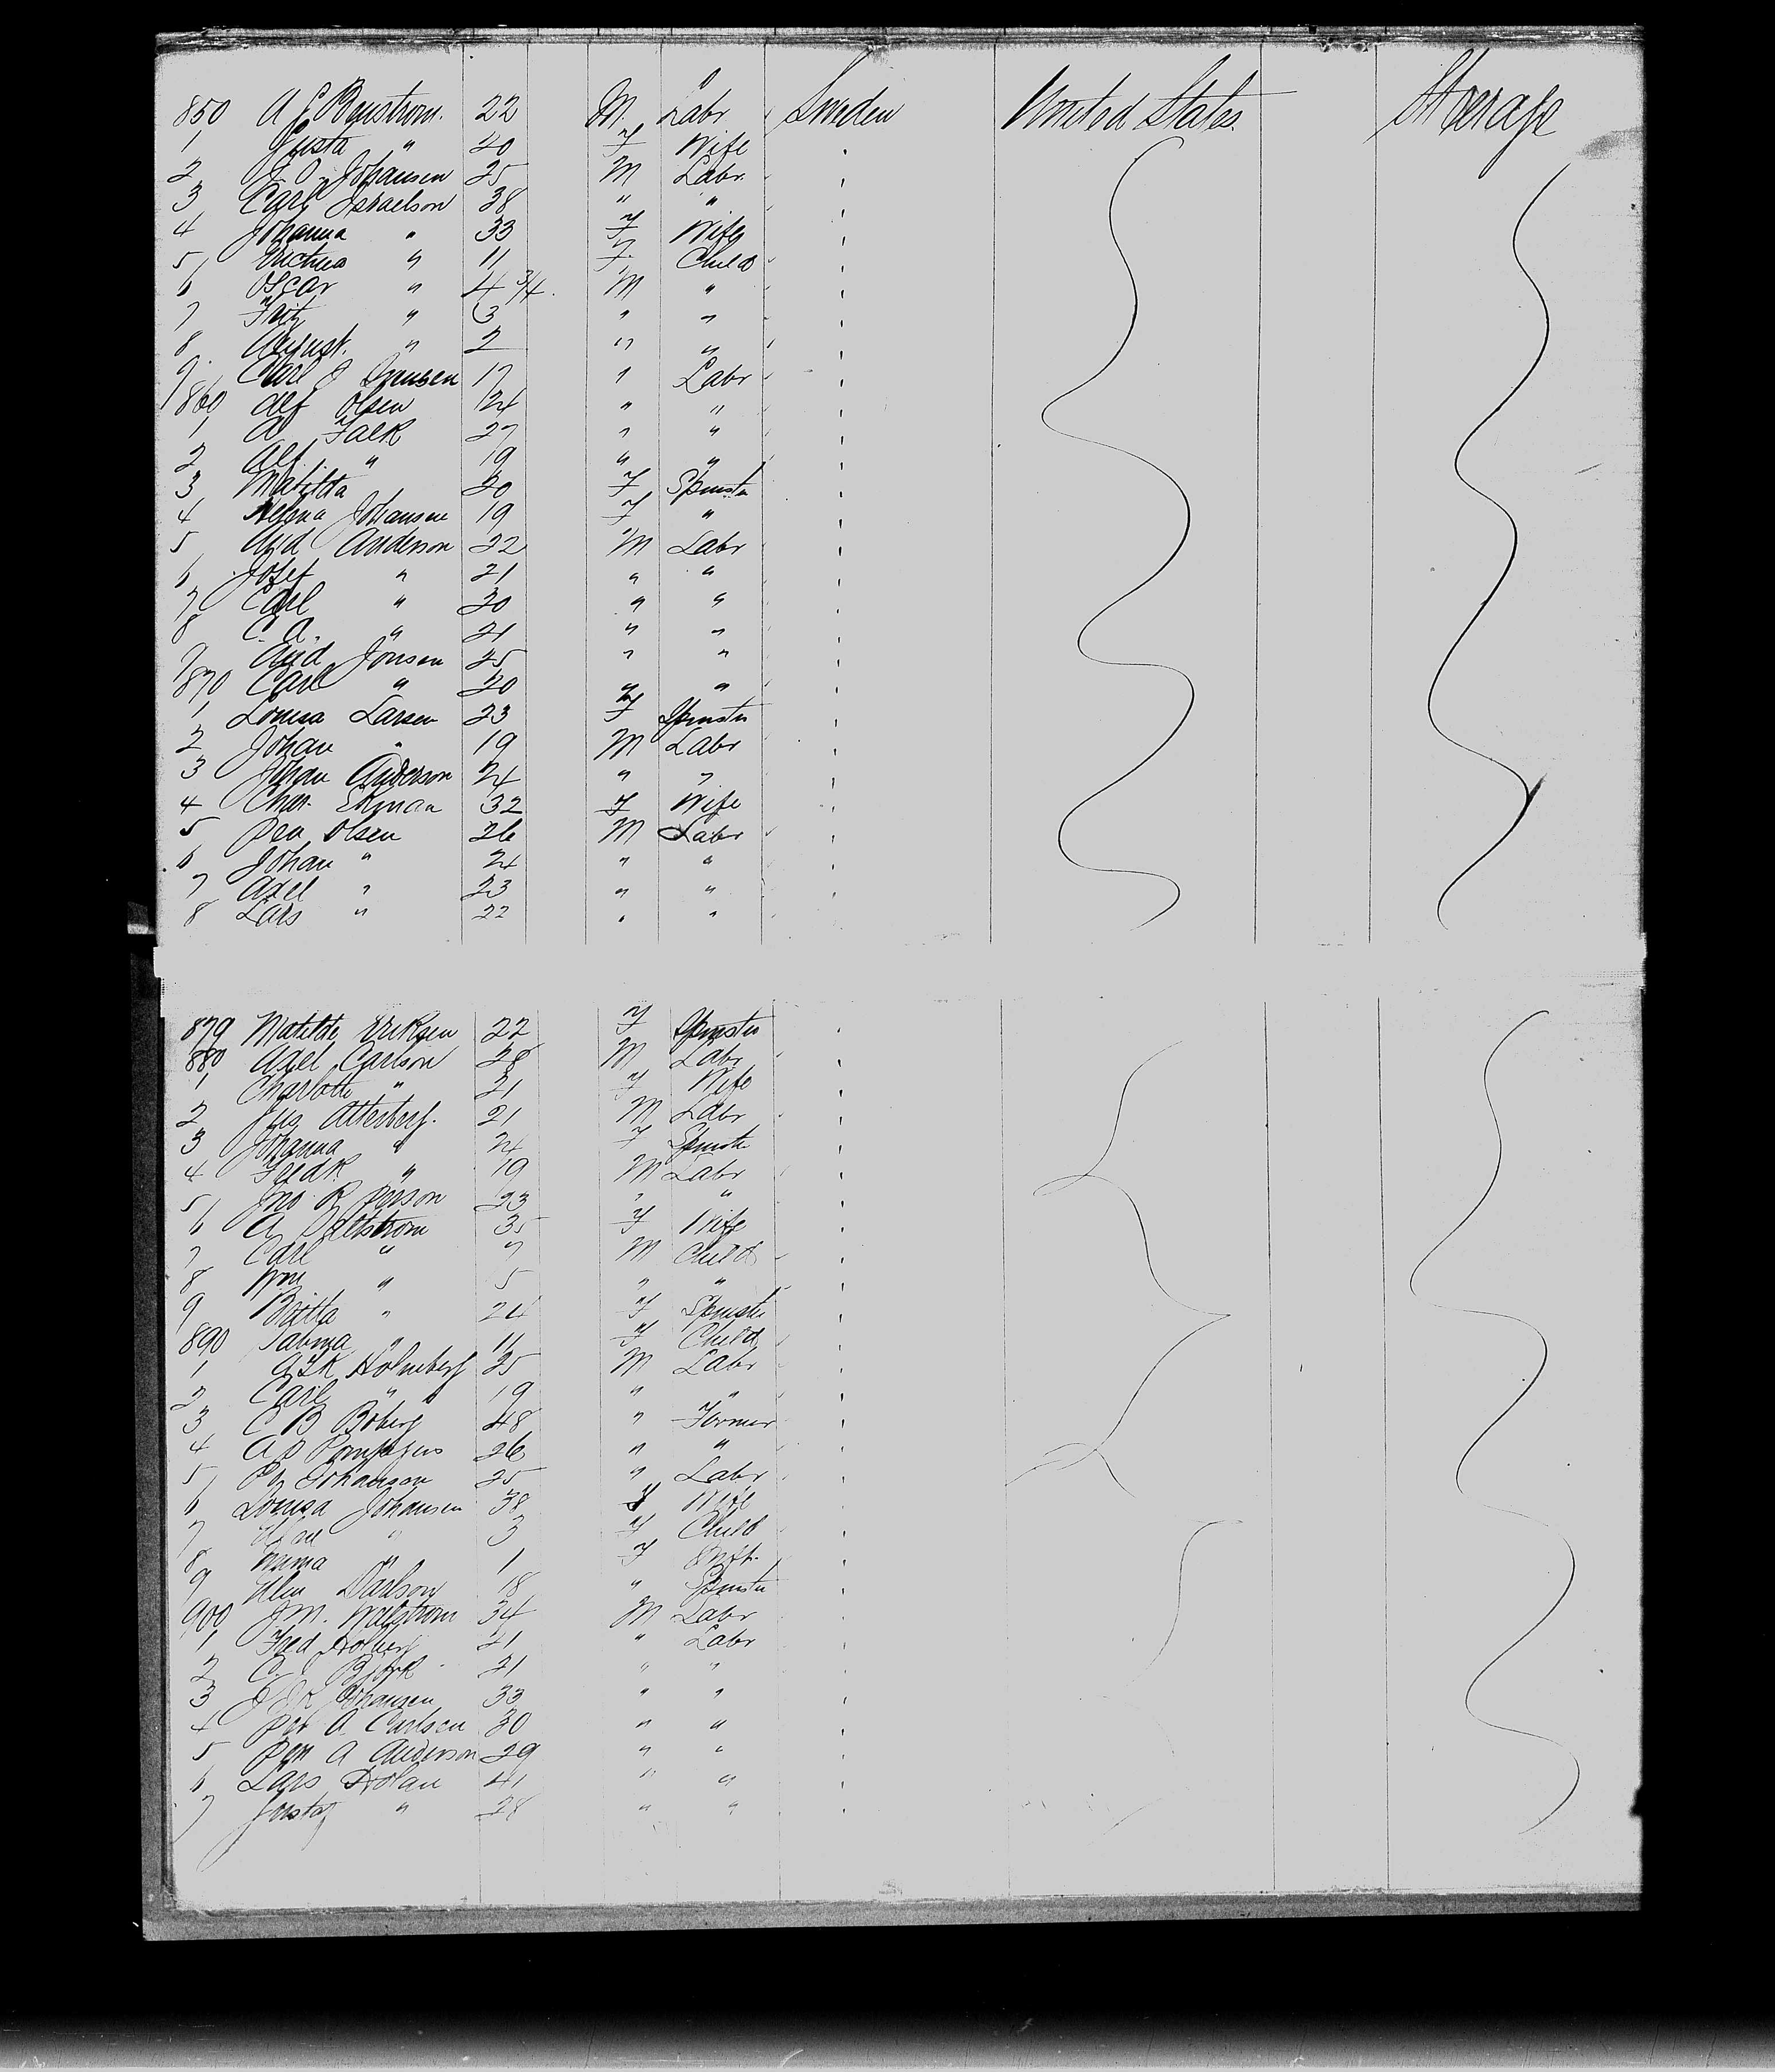 850 A Bystrom. 22 M. Labr Sweden United States. Steerage
1 Gusta " 20 F Wife
2 J. O. Johansen 25 M Labr.
3 Carl Israelson 38 " "
4 Johanna " 33 F Wife
5 " 11 F. Child
6 Oscar " 4 3/4 M "
7 Fritz " 3 " "
8 August. " 2 " "
9 Carl J 17 " Labr
860 Alf Olsen 24 " "
1 A Falk 27 " "
2 Alf. " 19 " "
3 Matilda 20 F Spinster
4 Helena Johansen 19 F "
5 And Anderson 22 M Labr
6 Josef " 21 " "
7 Carl " 20 " "
8 C. A. " 21 " "
9 And Jonsen 25 " "
870 Carl " 20 " "
1 Louisa Larsen 23 F Spinster
2 Johan " 19 M Labr
3 Johan Anderson 24 " "
4 Char. Ekman 32 F Wife
5 Per Olsen 26 M Labr
6 Johan " 24 " "
7 Axel " 23 " "
8 Lars " 22 " "
879 Matilda Eriksen 22 F Spinster
880 Axel Carlson 28 M Labr
1 Charlotte " 21 F Wife
2 Atterberg. 21 M Labr
3 Johanna " 24 F Spinster
4 Fredk " 19 M Labr
5 Jno R Person 23 " "
6 A 35 F Wife
7 Carl " 7 M Child
8 Wm " 5 " "
9 Britta " 24 F Spinster
890 Sabina " 11 F Child
1 Holmberg 25 M Labr
2 Carl " 19 " "
3 C B Boberg 48 " Farmer
4 26 " "
5 Johanson 25 " Labr
6 Louisa Johansen 38 F Wife
7 " 3 F Child
8 Emma " 1 F Inft.
9 18 " Spinster
900 J M. 34 M Labr
1 Fred 21 " Labr
2 C. J Bjork 21 " "
3 Johansen 33 " "
4 Per A Carlsen 30 " "
5 Per A Anderson 29 " "
6 Lars 41 " "
7 Gustaf " 28 " "